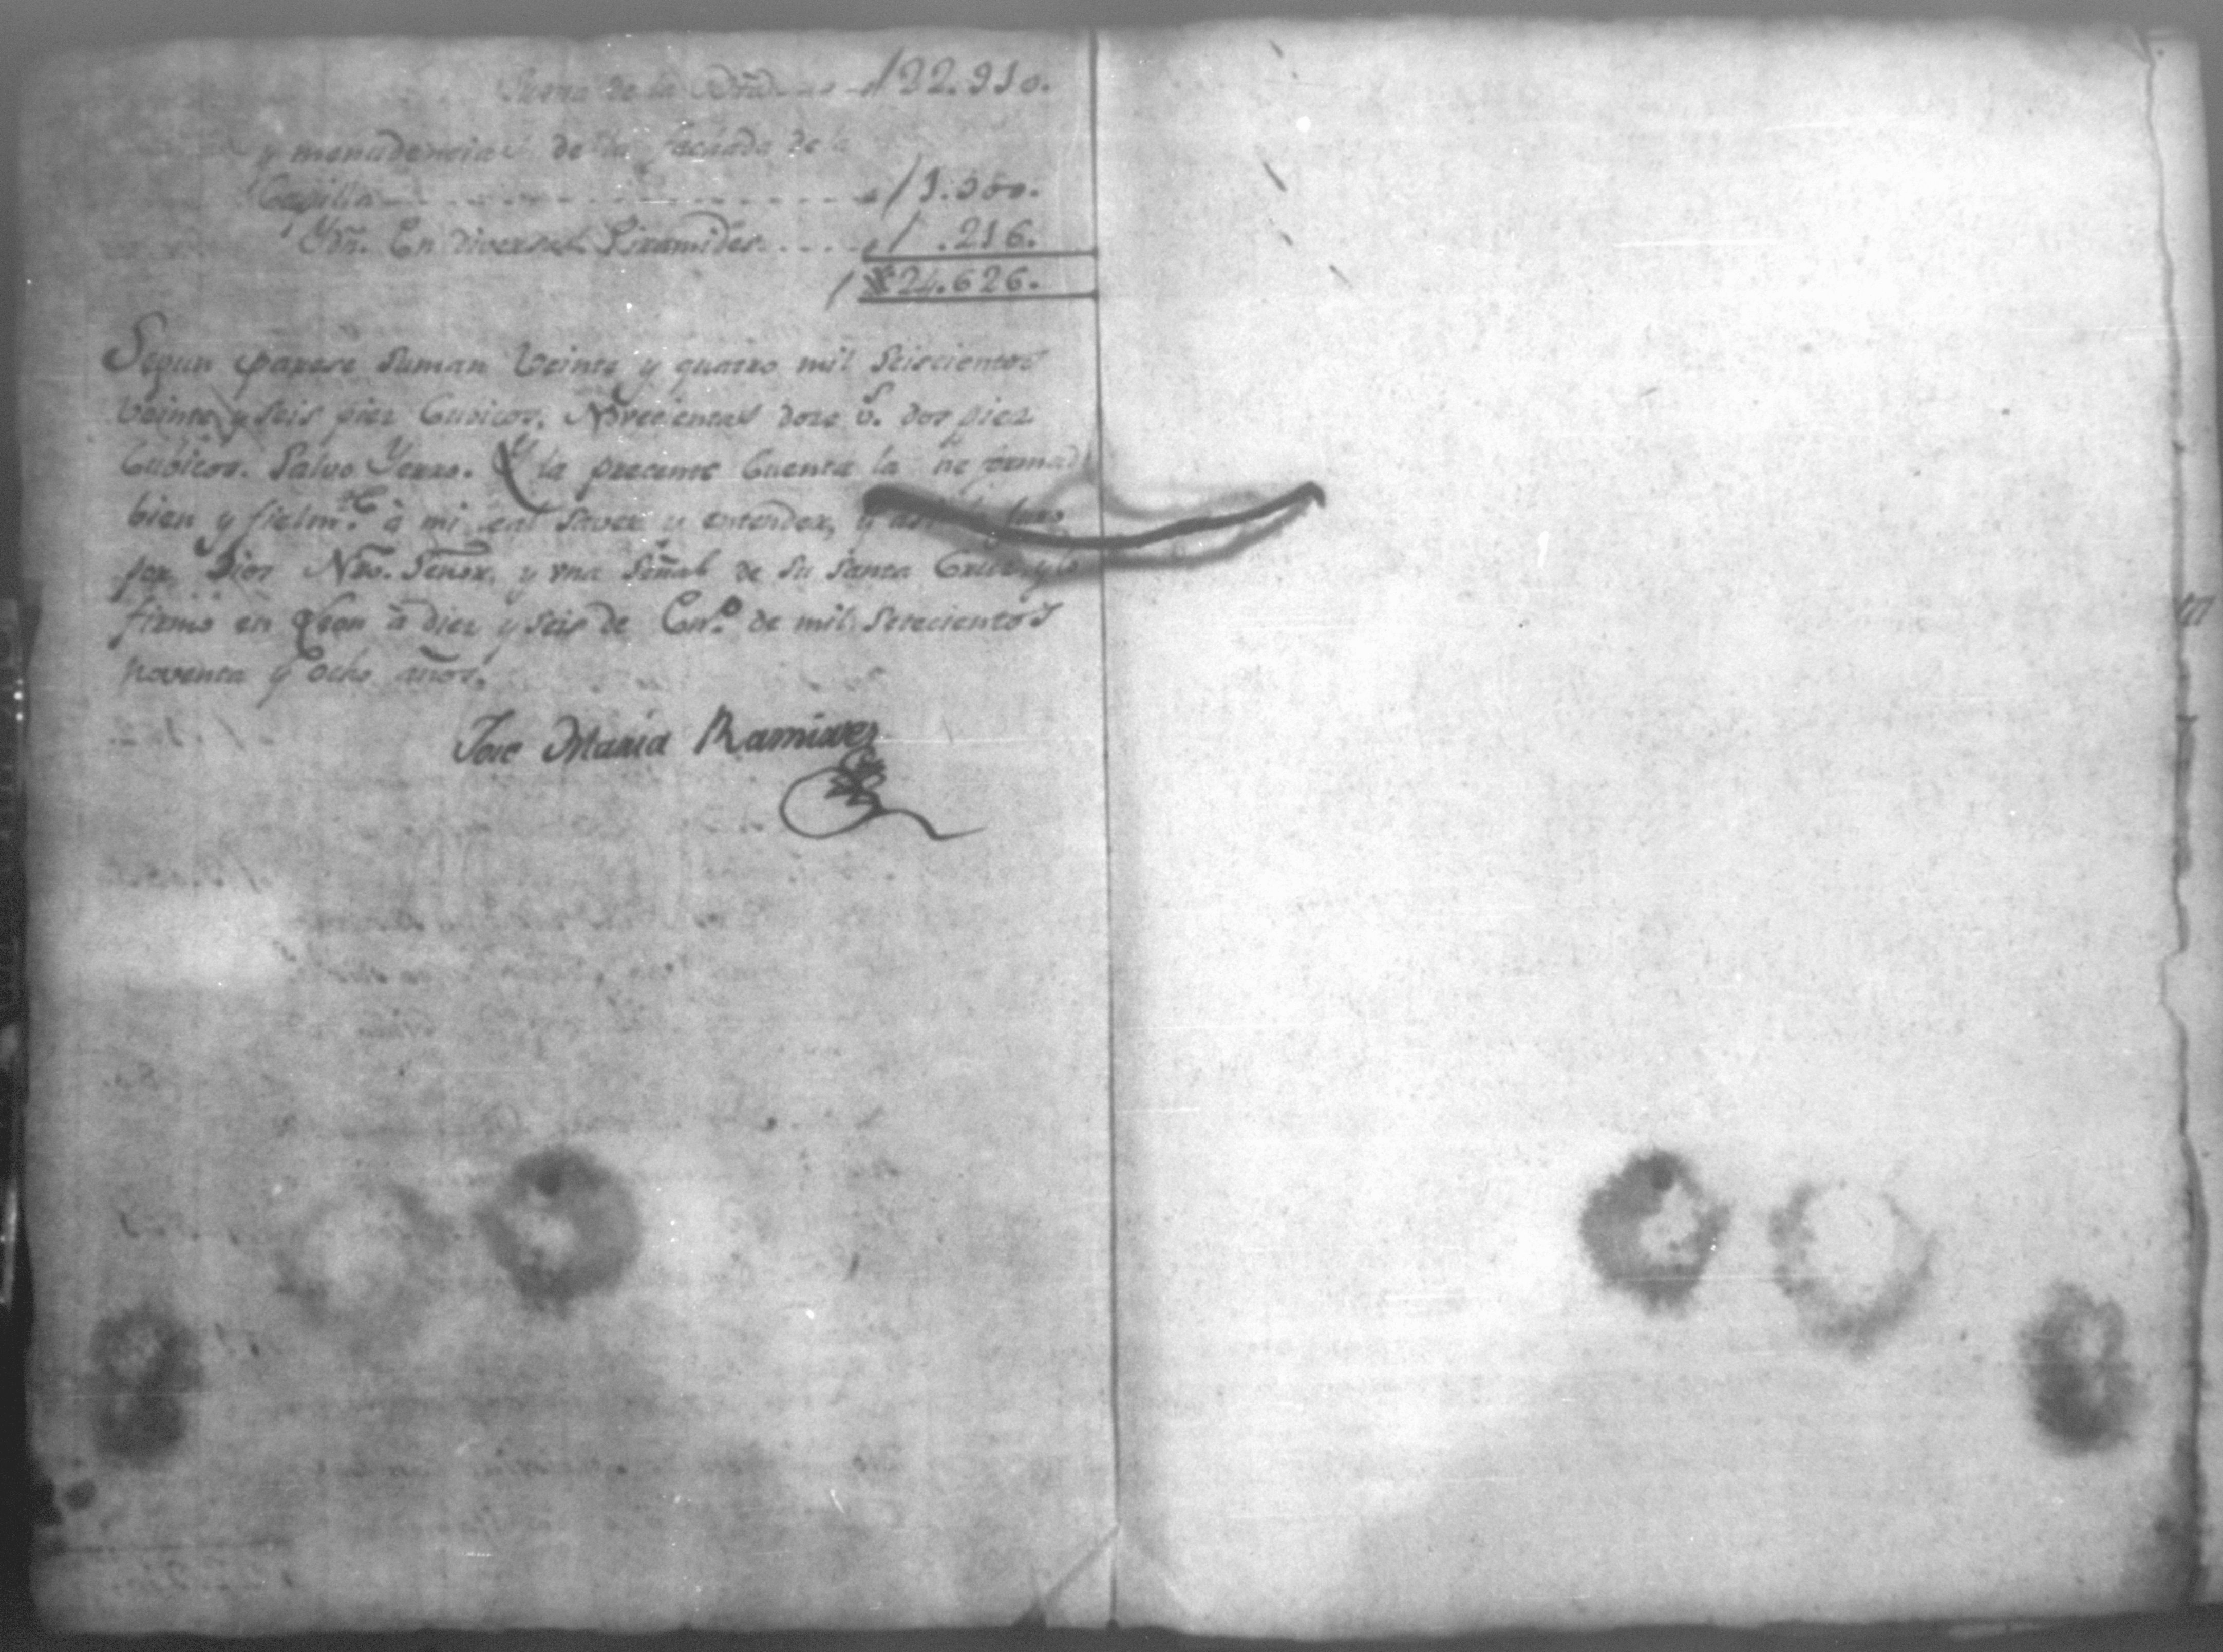 Suma de la Bũelta /22.910.
y menudencias de la fachada de la
Capilla /1.500.
Ydñ. En diversas Piramides /.216.
/24.626.
Segun parese suman Veinte y quatro mil Seiscientos
Veinte y seis piez Cubicos. Novecientas doze v.s dos piez
Cubicos. Salvo Yerro. Y la precente Cuenta la he formad
bien y fielm.te à mi leal saver y entender, y asi lo juro
por Dios Nrõ. Señor, y una Señal de su Santa Cruz, y lo
firmo en Leon à diez y seis de En.o de mil Setecientos
noventa y ocho años.
Jose Maria Ramirez